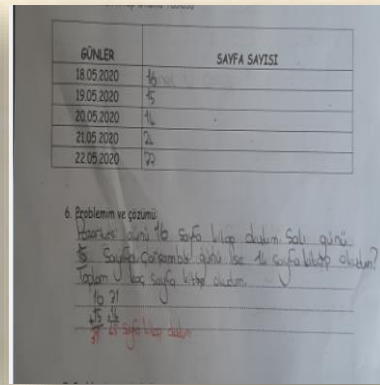 GÜNLER SAYFA SAYISI
18.05.2020 16
19.05.2020 15
20.05.2020 14
21.05.2020
22.05.2020 22
6. Problemim ve çözümü
Pazartesi günü 16 sayfa kitap okudum. Salı günü
15 sayfa Çarşamba günü ise 14 sayfa kitap okudum?
Toplam kaç sayfa kitap okudum.
16 31
+15 +14
31 45 sayfa kitap okudum